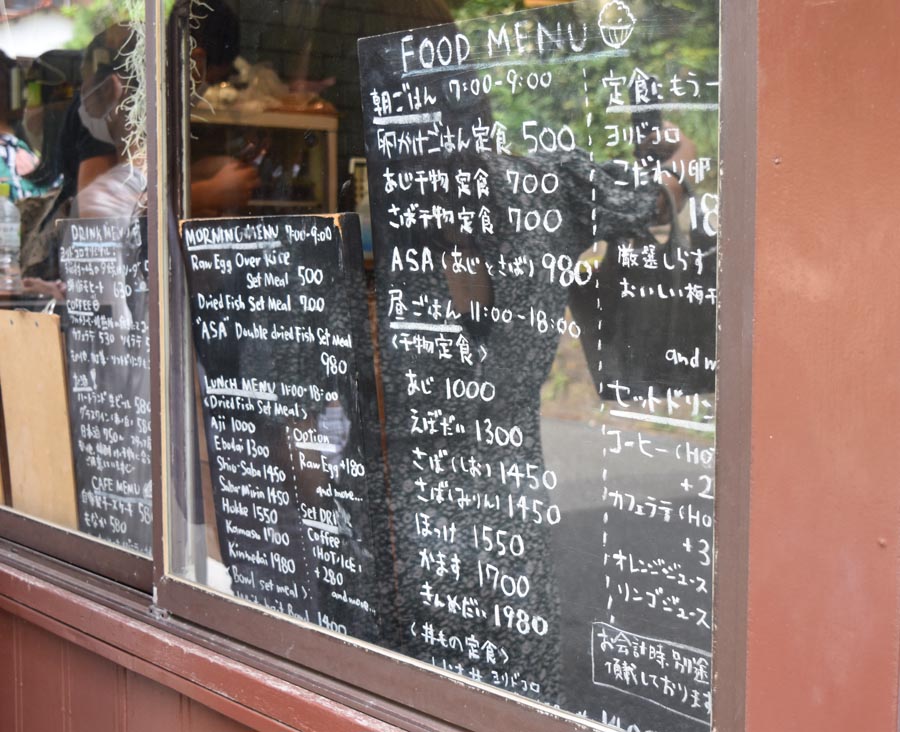 DRINK MENU
COFFEE
カフェラテ 530
ハートランド生ビール 580
日本酒 750
CAFE MENU
自家製チーズケーキ 580
もなか 580
MORNING MENU 7:00-9:00
Raw Egg Over Rice
Set Meal 500
Dried Fish Set Meal 700
"ASA" Double dried Fish Set Meal
980
LUNCH MENU 11:00-18:00
(Dried Fish Set Meal)
Aji 1000
Ebodai 1300
Shio-Saba 1450
Saba Mirin 1450
Hokke 1550
Kamasu 1700
Kinmedai 1980
(Bowl set meal)
Bowl 1400
Option
Raw Egg +180
and more...
Set DRI
Coffee
(HOT/ICE)
+280
and more...
FOOD MENU
朝ごはん 7:00-9:00
卵かけごはん定食 500
あじ干物定食 700
さば干物定食 700
ASA (あじとさば) 980
昼ごはん 11:00-18:00
<干物定食>
あじ 1000
えぼだい 1300
さば(しお) 1450
さば(みりん) 1450
ほっけ 1550
かます 1700
きんめだい 1980
<丼もの定食>
しらす丼 ヨリドコロ
定食にもう一
ヨリドコロ
こだわり卵
18
厳選しらす
おいしい梅干
and m
セットドリン
コーヒー (HO
+2
カフェラテ (HO
+3
オレンジジュース
リンゴジュース
お会計時、別途
頂戴しております